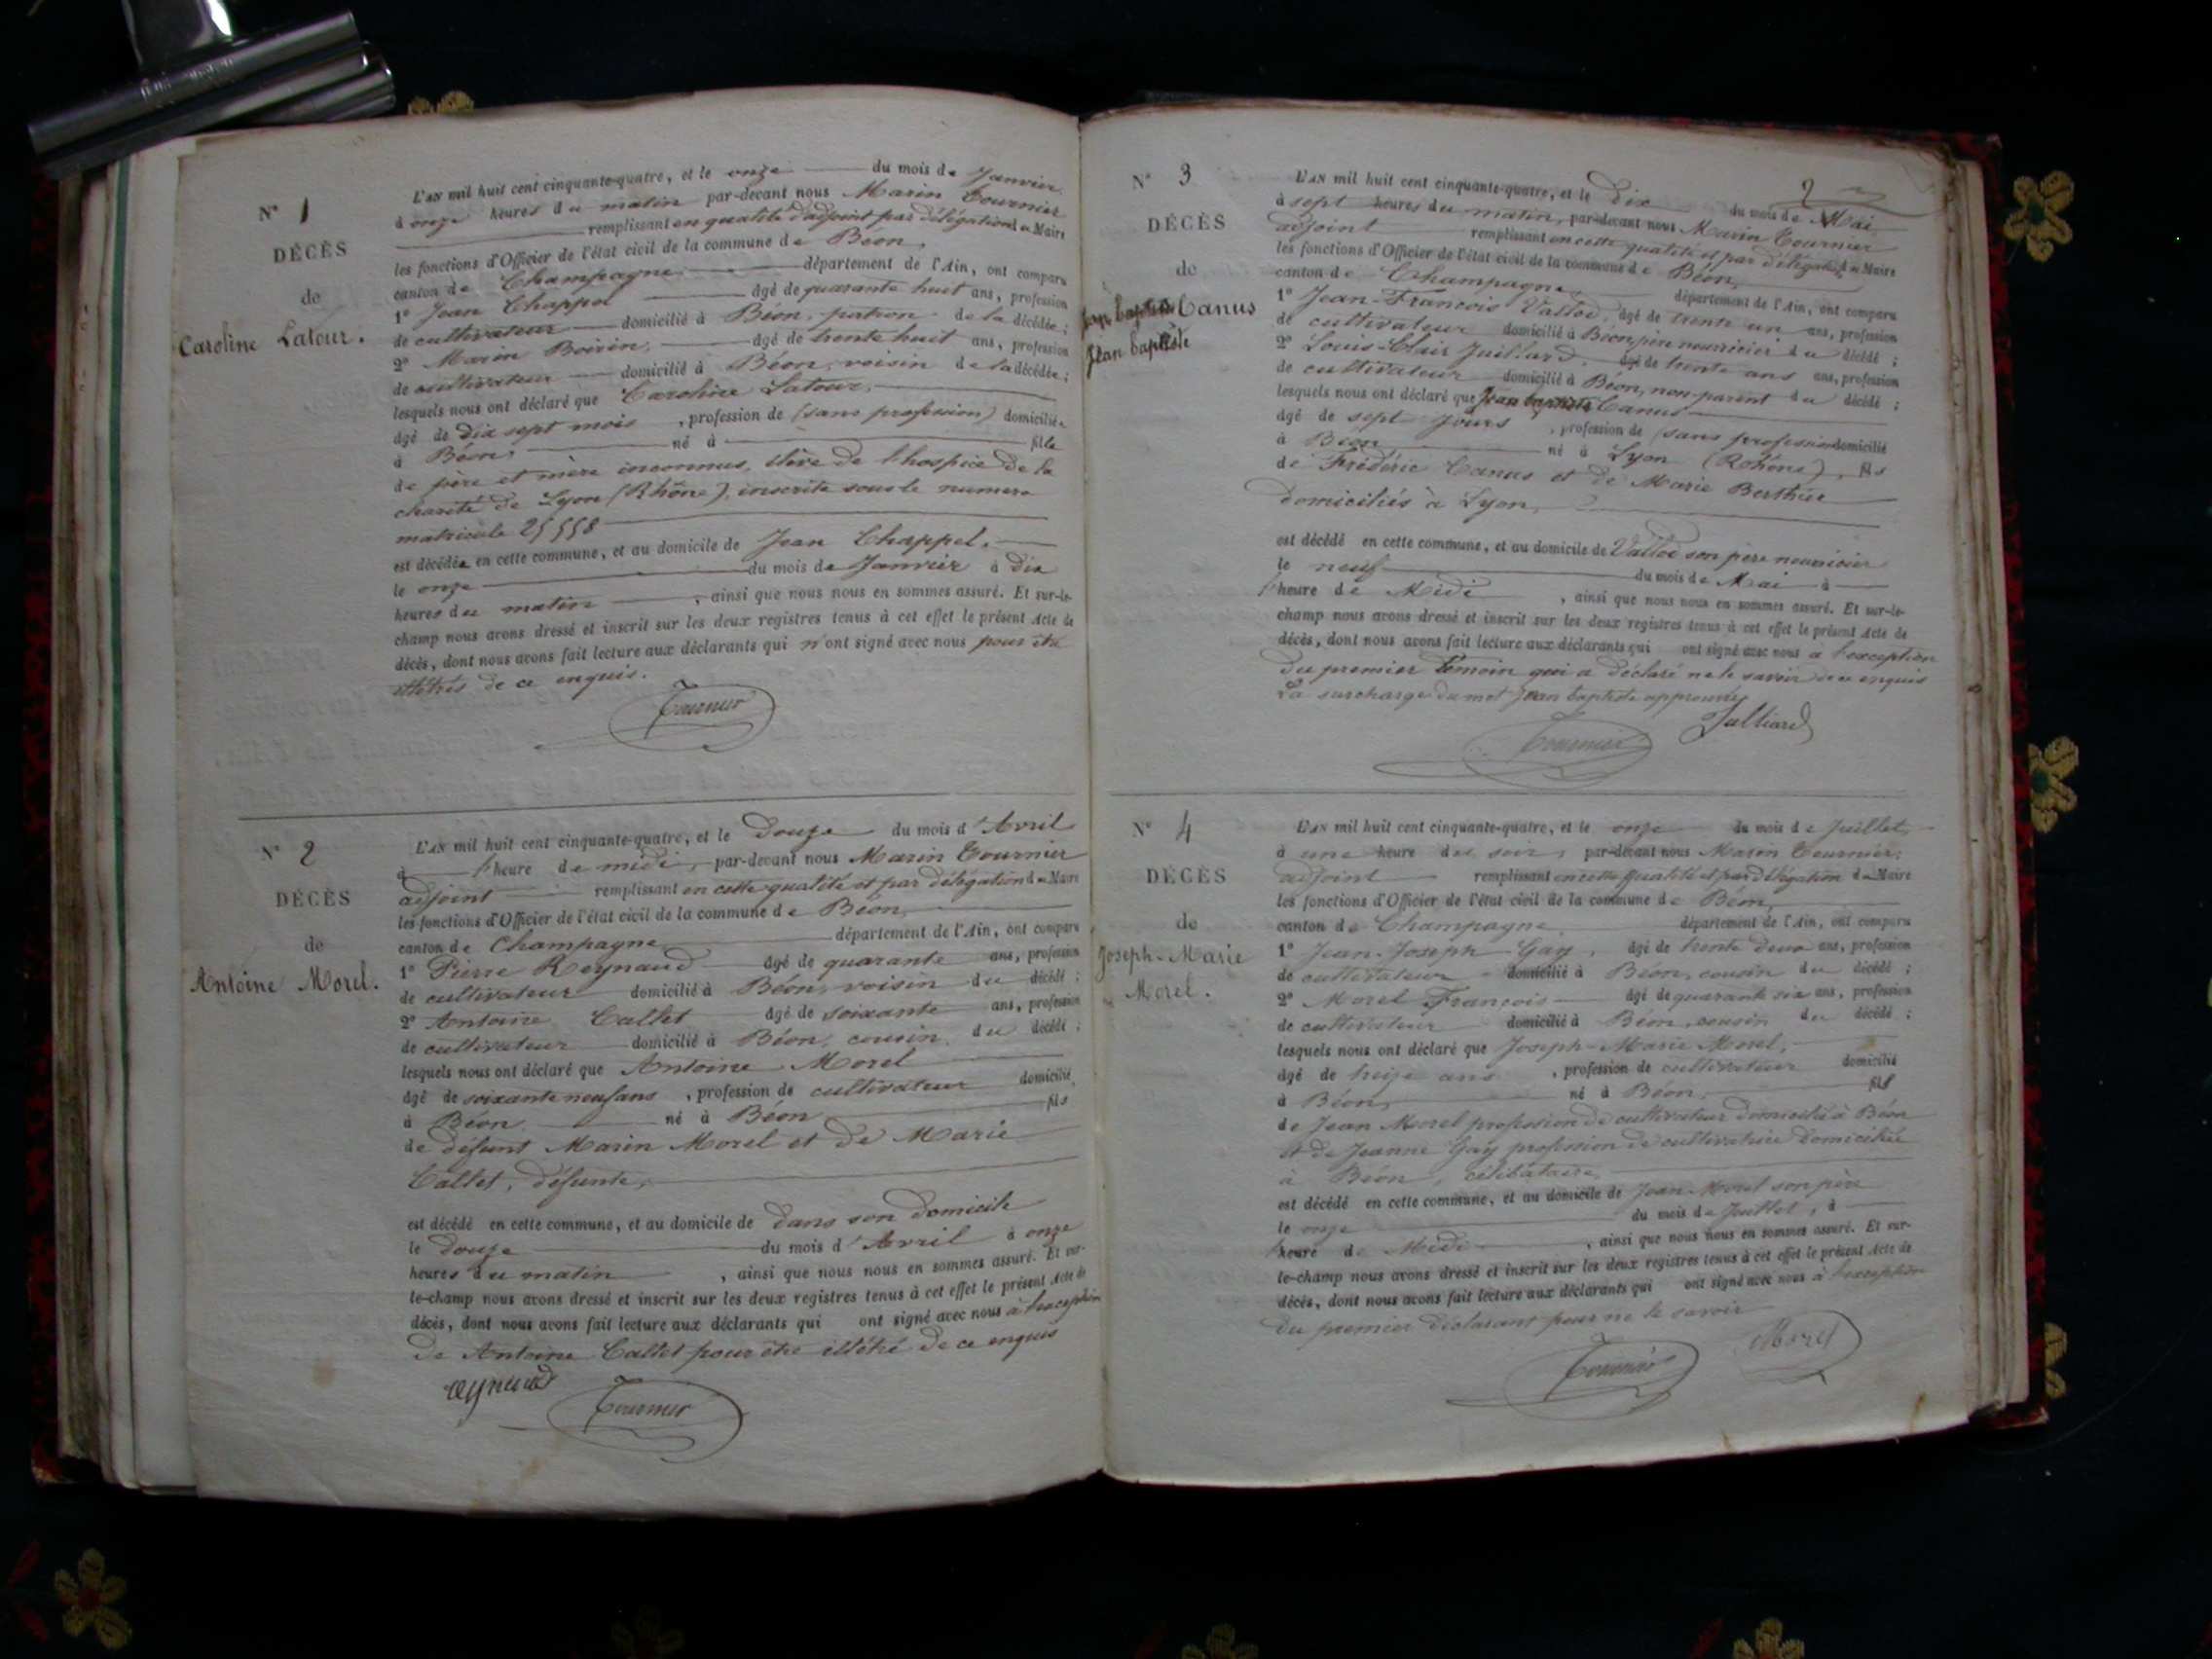 N° 1
DÉCÈS
de
Caroline Latour.
L'AN mil huit cent cinquante-quatre, et le onze du mois de Janvier
à onze heures du matin par-devant nous Marin Tournier
remplissant en qualité d'adjoint par délégation du Maire
les fonctions d'Officier de l'état civil de la commune de Béon,
canton de Champagne, département de l'Ain, ont comparu
1° Jean Chappel âgé de quarante huit ans, profession
de cultivateur domicilié à Béon, patron de la décédée ;
2° Marin Boirin, âgé de trente huit ans, profession
de cultivateur domicilié à Béon, voisin de la décédée ;
lesquels nous ont déclaré que Caroline Latour,
âgé de dix sept mois, profession de (sans profession) domiciliée
à Béon, né à fille
de père et mère inconnus, élève de l'hospice de la
charité de Lyon (Rhône), inscrite sous le numero
matricule 25558
est décédée en cette commune, et au domicile de Jean Chappel,
le onze du mois de Janvier à dix
heures du matin, ainsi que nous nous en sommes assuré. Et sur-le-
champ nous avons dressé et inscrit sur les deux registres tenus à cet effet le présent Acte de
décès, dont nous avons fait lecture aux déclarants qui n'ont signé avec nous pour être
illétrés de ce enquis.
Tournier
N° 2
DÉCÈS
de
Antoine Morel.
L'AN mil huit cent cinquante-quatre, et le douze du mois d'Avril
à l'heure de midi, par-devant nous Marin Tournier
adjoint remplissant en cette qualité et par délégation du Maire
les fonctions d'Officier de l'état civil de la commune de Béon,
canton de Champagne département de l'Ain, ont comparu
1° Pierre Reynaud âgé de quarante ans, profession
de cultivateur domicilié à Béon, voisin du décédé ;
2° Antoine Callet âgé de soixante ans, profession
de cultivateur domicilié à Béon, cousin du décédé ;
lesquels nous ont déclaré que Antoine Morel
âgé de soixante neuf ans, profession de cultivateur domicilié,
à Béon né à Béon fils
de défunt Marin Morel et de Marie
Callet, défunte,
est décédé en cette commune, et au domicile de dans son domicile
le douze du mois d'Avril à onze
heures du matin, ainsi que nous nous en sommes assuré. Et sur-
le-champ nous avons dressé et inscrit sur les deux registres tenus à cet effet le présent Acte de
décès, dont nous avons fait lecture aux déclarants qui ont signé avec nous à l'exception
de Antoine Callet pour être illétré de ce enquis
Reynaud
Tournier
2
N° 3
DÉCÈS
de
Jean baptiste Canus
Jean baptiste
L'AN mil huit cent cinquante-quatre, et le Dix du mois de Mai
à sept heures du matin, par-devant nous Marin Tournier
adjoint remplissant en cette qualité et par délégation du Maire
les fonctions d'Officier de l'état civil de la commune de Béon,
canton de Champagne, département de l'Ain, ont comparu
1° Jean-Francois Vallod, âgé de trente un ans, profession
de cultivateur domicilié à Béon père nourricier du décédé ;
2° Louis-Clair Juillard âgé de trente ans ans, profession
de cultivateur domicilié à Béon, non parent du décédé ;
lesquels nous ont déclaré que Jean baptiste Canus
âgé de sept jours, profession de (sans profession domicilié
à Béon né à Lyon (Rohône), fils
de Frédéric Canus et de Marie Berthier
domiciliés à Lyon,
est décédé en cette commune, et au domicile de Vallod son père nourricier
le neuf du mois de Mai à
l'heure de Midi, ainsi que nous nous en sommes assuré. Et sur-le-
champ nous avons dressé et inscrit sur les deux registres tenus à cet effet le présent Acte de
décès, dont nous avons fait lecture aux déclarants qui ont signé avec nous à l'exception
du premier témoin qui a déclaré ne le savoir de ce enquis
La surcharge du mot Jean baptiste approuvée
Julliard
Tournier
N° 4
DÉCÈS
de
Joseph-Marie
Morel.
L'AN mil huit cent cinquante-quatre, et le onze du mois de Juillet,
à une heure du soir, par-devant nous Marin Tournier,
adjoint remplissant en cette qualité et par délégation du Maire
les fonctions d'Officier de l'état civil de la commune de Béon,
canton de Champagne, département de l'Ain, ont comparu
1° Jean-Joseph Gay, âgé de trente deux ans, profession
de cultivateur domicilié à Béon, cousin du décédé ;
2° Morel François âgé de quarante six ans, profession
de cultivateur domicilié à Béon, cousin du décédé ;
lesquels nous ont déclaré que Joseph-Marie Morel,
âgé de treize ans, profession de cultivateur domicilié
à Béon, né à Béon, fils
de Jean Morel profession de cultivateur domicilié à Béon
et de Jeanne Gay profession de cultivatrice domiciliée
à Béon, célibataire
est décédé en cette commune, et au domicile de Jean Morel son père
le onze du mois de Juillet, à
l'heure de Midi, ainsi que nous nous en sommes assuré. Et sur-
le-champ nous avons dressé et inscrit sur les deux registres tenus à cet effet le présent Acte de
décès, dont nous avons fait lecture aux déclarants qui ont signé avec nous à l'exception
du premier déclarant pour ne le savoir
Tournier
Morel